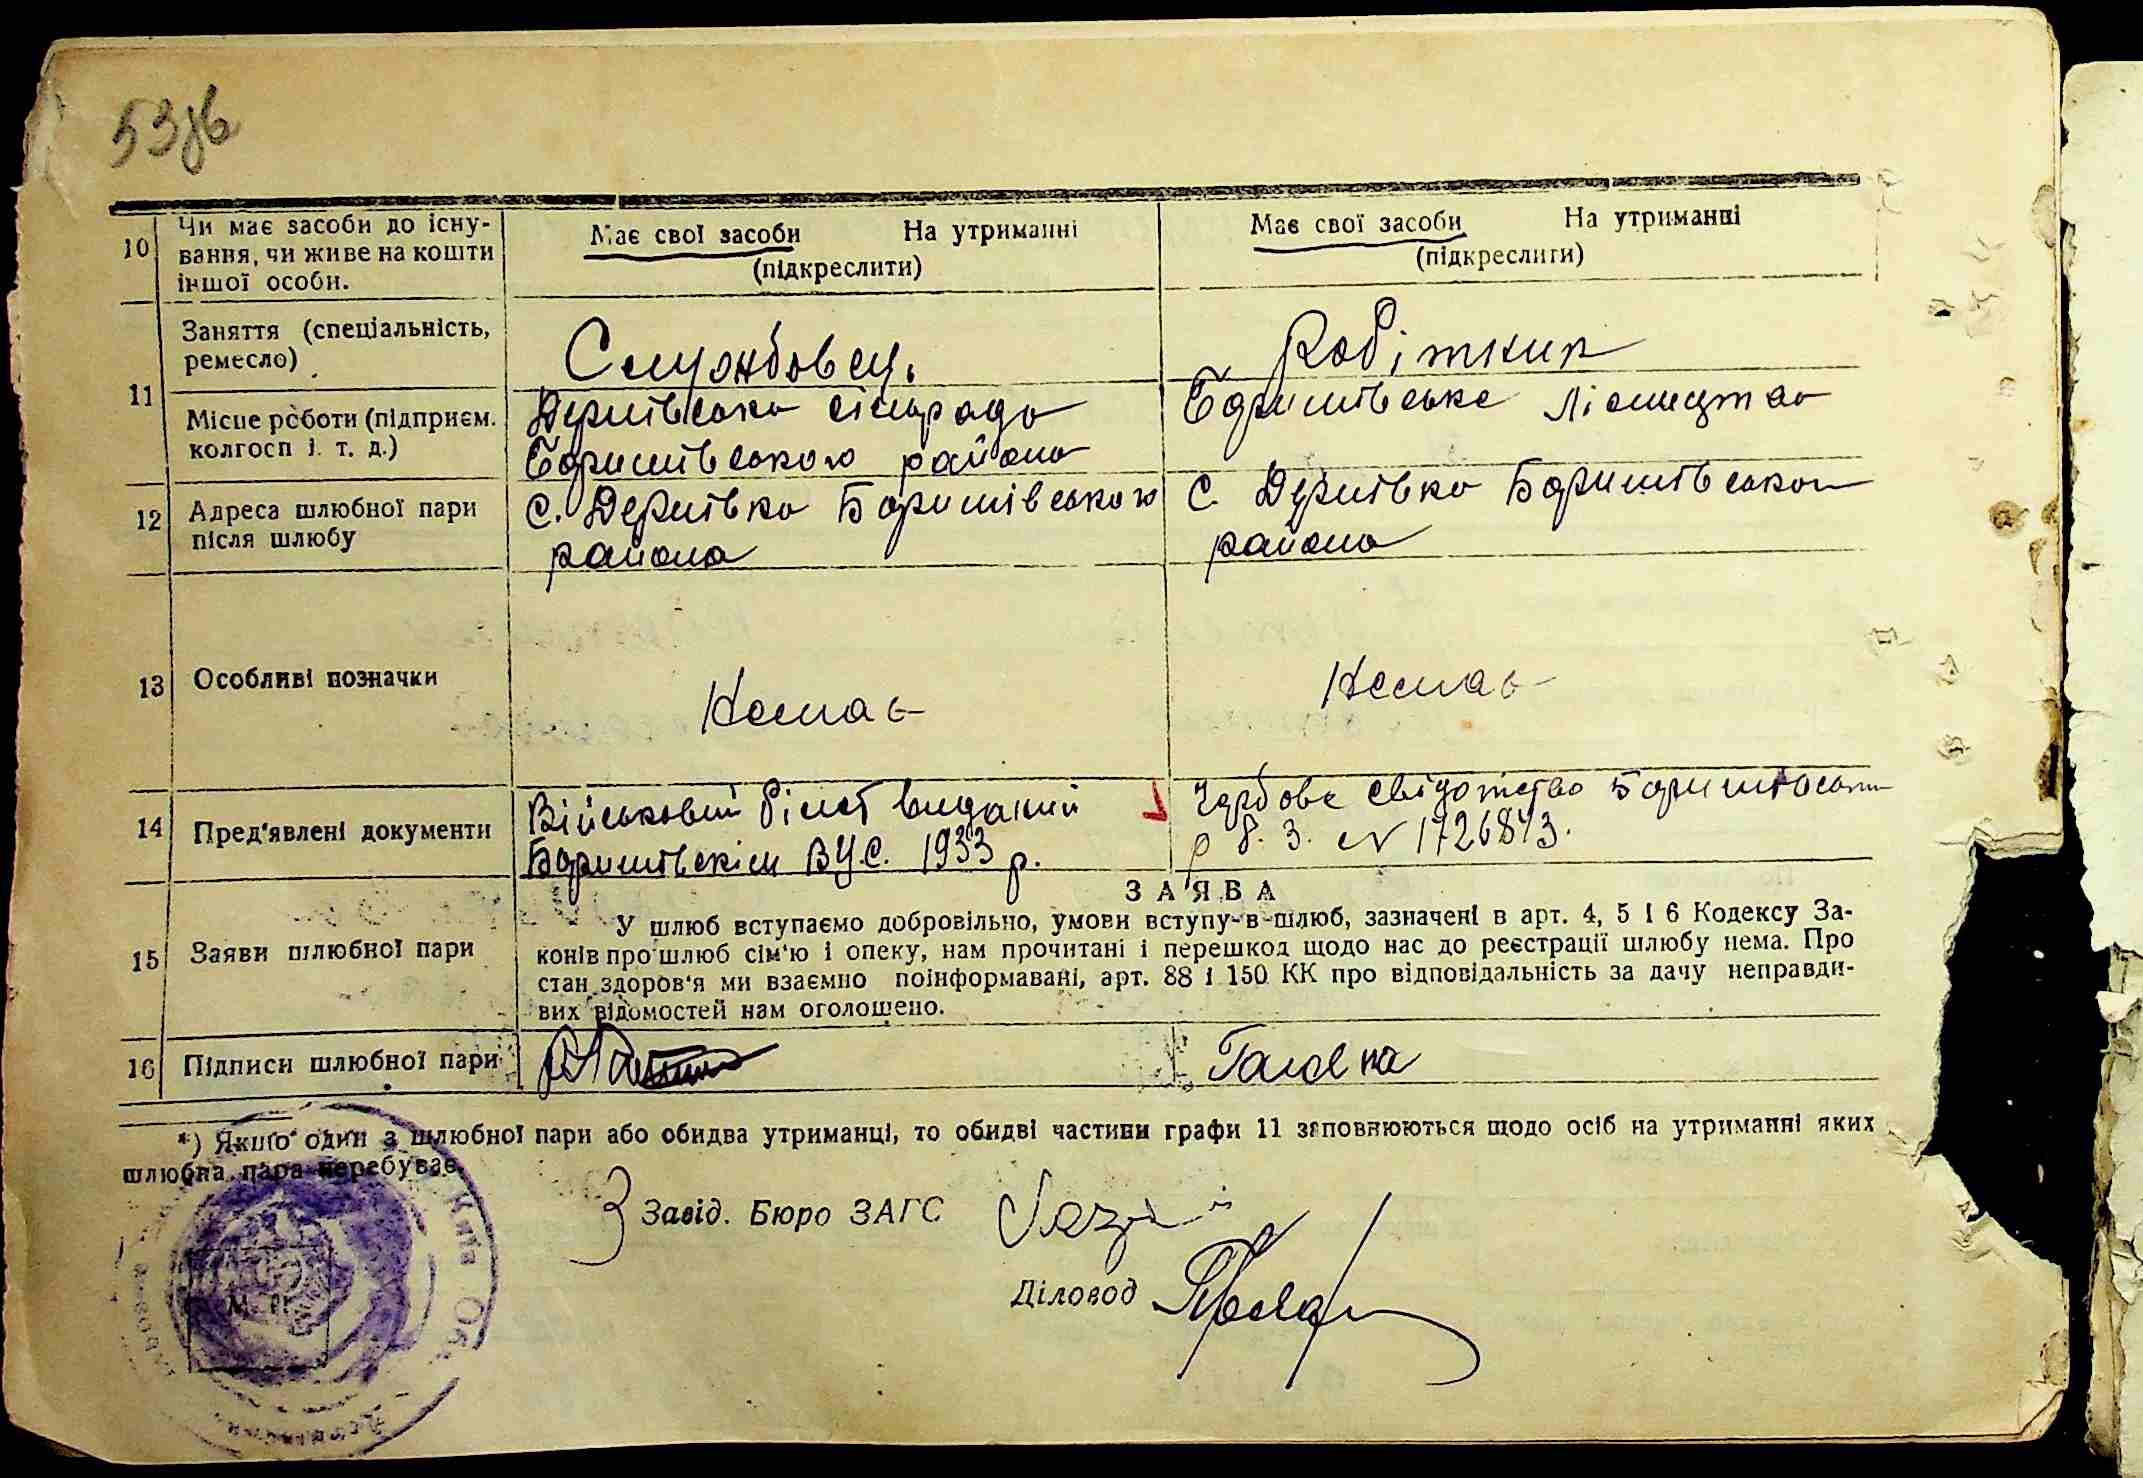 53зв
10
Чи має засоби до існу-
вання, чи живе на кошти
іншої особи.
Має свої засоби На утриманні
(підкреслити)
Має свої засоби На утриманні
(підкреслити)
11
Заняття (спеціальність,
ремесло)
Службовец.
Робітниця
Місце роботи (підприєм.
колгосп і. т. д.)
Дернівська сільрада
Баришівського района
Баришівське Лісництво
12
Адреса шлюбної пари
після шлюбу
С. Дернівка Баришівського
района
С. Дернівка Баришівського
района
13
Особливі позначки
Немає
Немає
14
Пред'явлені документи
Військовий білет виданий
Баришівскім ВУС. 1933 р.
свідотство Баришівським
р В. З. N 1726843.
15
Заяви шлюбної пари
ЗАЯВА
У шлюб вступаємо добровільно, умови вступу-в-шлюб, зазначені в арт. 4, 5 і 6 Кодексу За-
конів про шлюб сім'ю і опеку, нам прочитані і перешкод щодо нас до реєстрації шлюбу нема. Про
стан здоров'я ми взаємно поінформавані, арт. 88 і 150 КК про відповідальність за дачу неправди-
вих відомостей нам оголошено.
16
Підписи шлюбної пари
*) Якщо один з шлюбної пари або обидва утриманці, то обидві частини графи 11 заповнюються щодо осіб на утриманні яких
шлюбна пара перебуває.
Завід. Бюро ЗАГС
Діловод
М. П.
Київ Об.